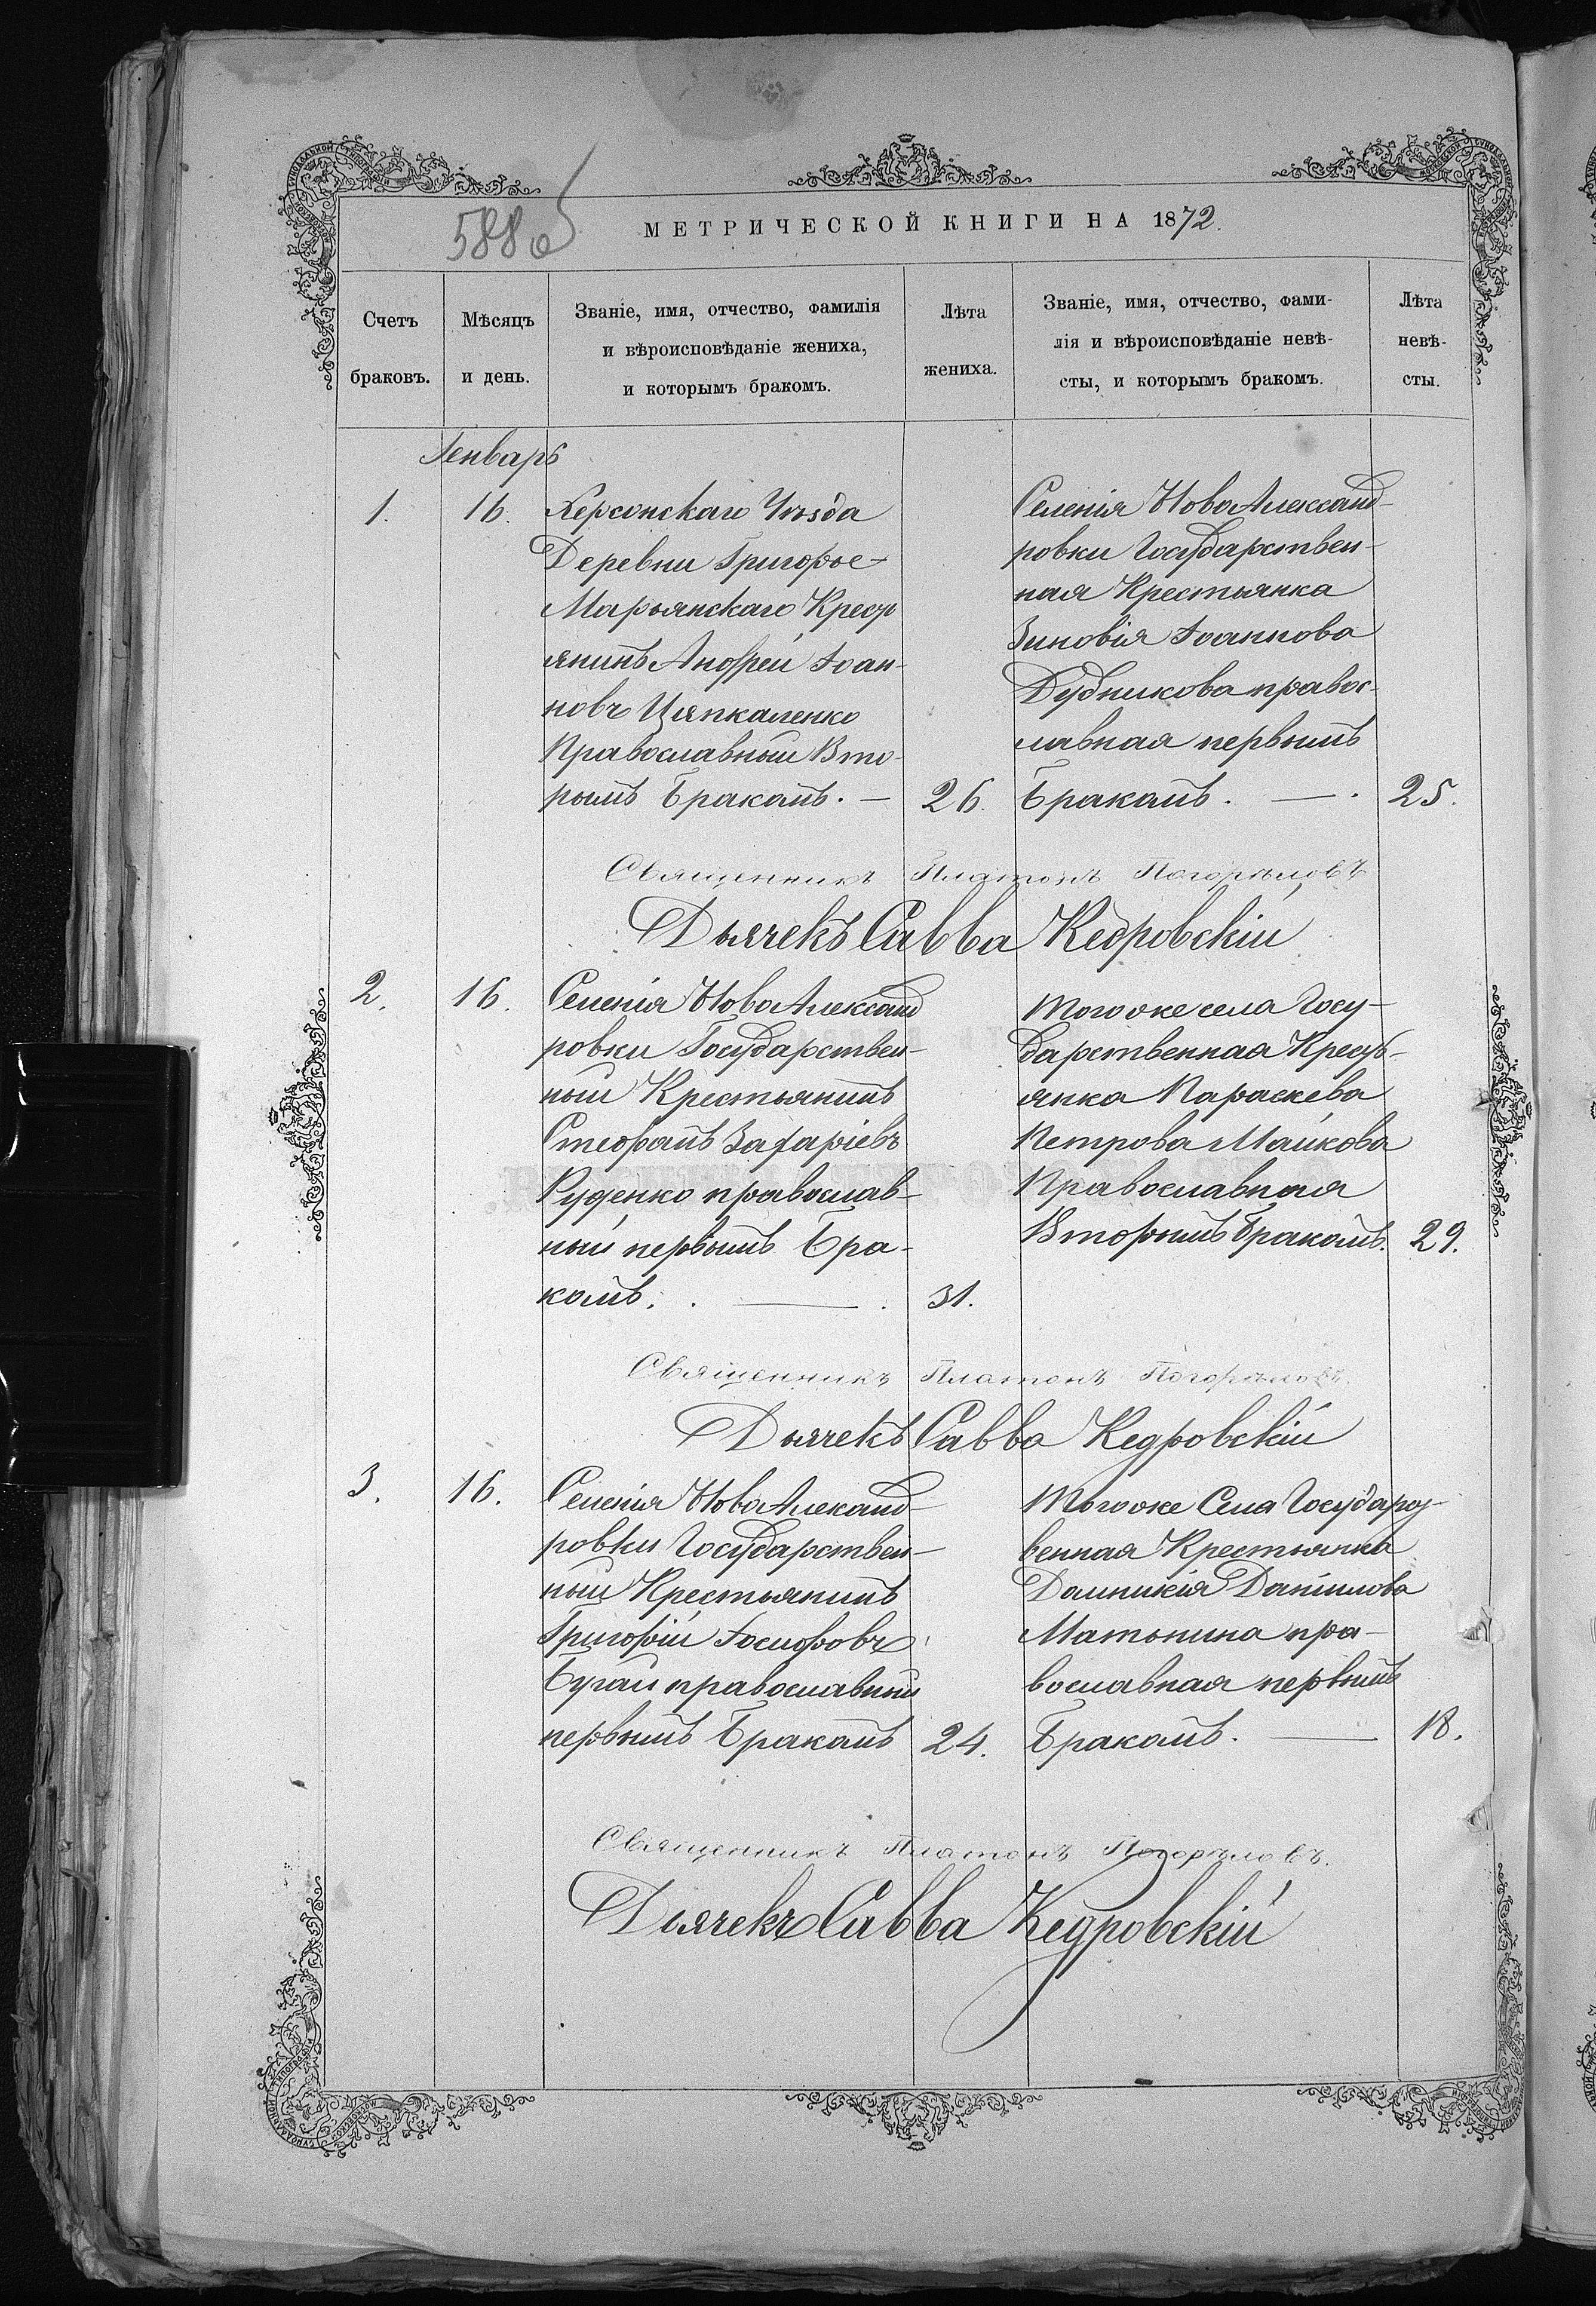 588 об
МЕТРИЧЕСКОЙ КНИГИ НА 1872.
Счетъ браковъ.
Мѣсяцъ и день.
Званіе, имя, отчество, фамилія
и вѣроисповѣданіе жениха,
и которымъ бракомъ.
Лѣта жениха.
Званіе, имя, отчество, фами-
лія и вѣроисповѣданіе невѣ-
сты, и которымъ бракомъ.
Лѣта невѣ-
сты.
Генварь
1. 16.
Херсонскаго Уѣзда
Деревни Григорье-
Марьянскаго Крест
янинъ Андрей Іоан-
новъ Цяпкаленко
Православный Вто-
рымъ Бракомъ. — 26.
Селенія НовоАлександ-
ровки Государствен-
ная Крестьянка
Зиновія Іоаннова
Дубникова правос-
лавная первымъ
Бракомъ. — . 25.
Священникъ Платонъ Погорѣловъ
Дьячекъ Савва Кедровскій
2. 16.
Селенія НовоАлександ
ровки Государствен-
ный Крестьянинъ
Стефанъ Захаріевъ
Руденко православ-
ный первымъ Бра-
комъ. . — . 31.
Тогоже села Госу-
дарственная Кресть-
янка Параскева
Петрова Майкова
Православная
Вторымъ Бракомъ. 29.
Священникъ Платонъ Погорѣловъ.
Дьячекъ Савва Кедровскій
3. 16.
Селенія НовоАлеканд-
ровки Государствен-
ный Крестьянинъ
Григорій Іосифовъ
Бугай православный
первымъ Бракомъ 24.
Тогоже Села Государст-
венная Крестьянка
Домникія Даніилова
Матонина пра-
вославная первымъ
Бракомъ. — 18.
Священникъ Платонъ Погорѣловъ.
Дьячекъ Савва Кедровскій